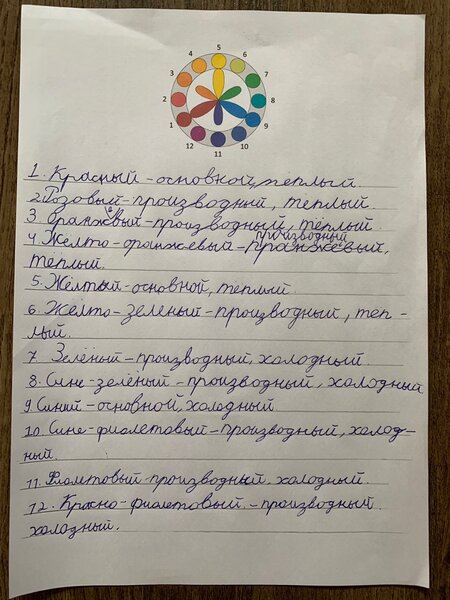 4 5 6
3 7
2 8
1 9
12 11 10
1. Красный - основной, теплый.
2. Розовый - производный, теплый.
3. Оранжевый - производный, тёплый.
4. Желто - оранжевый - производный,
теплый.
5. Жёлтый - основной, теплый.
6. Жёлто - зеленый - производный, теп -
лый.
7. Зелёный - производный, холодный
8. Сине - зелёный - производный, холодный
9. Синий - основной, холодный
10. Сине - фиолетовый - производный, холод-
ный.
11. Фиолетовый - производный, холодный.
12. Красно - фиолетовый - производный.
холодный.